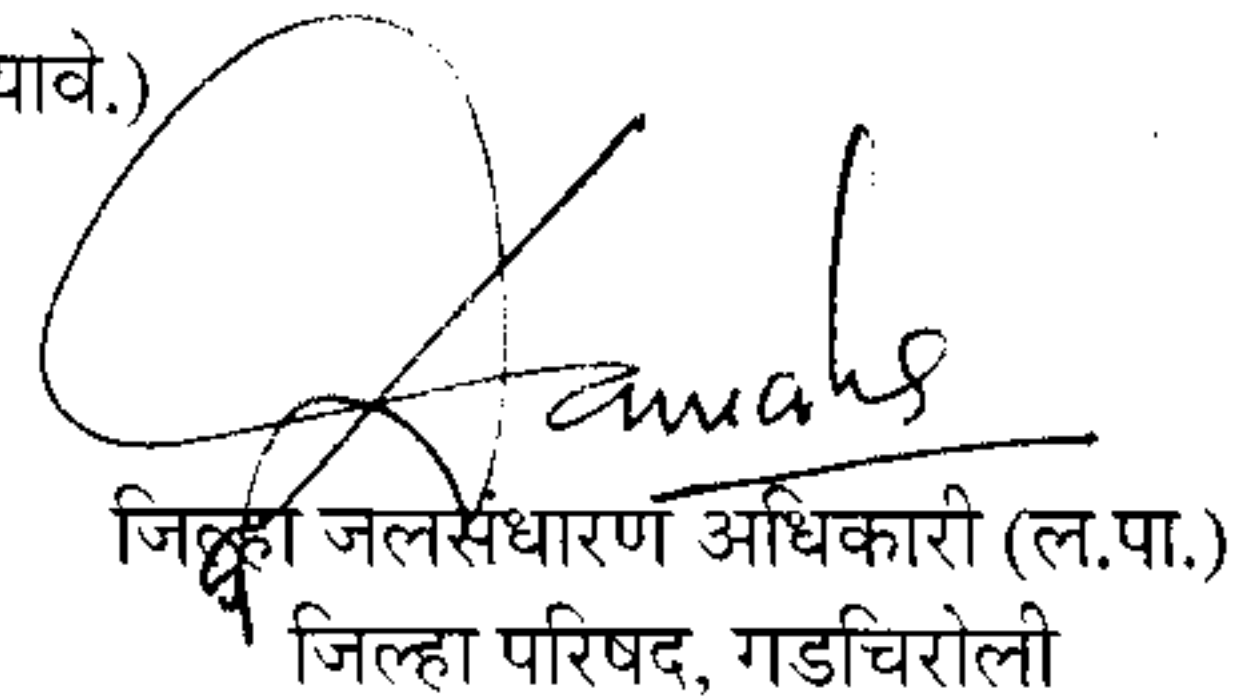 यावे.)
जिल्हा जलसंधारण अधिकारी (ल.पा.)
जिल्हा परिषद, गडचिरोली